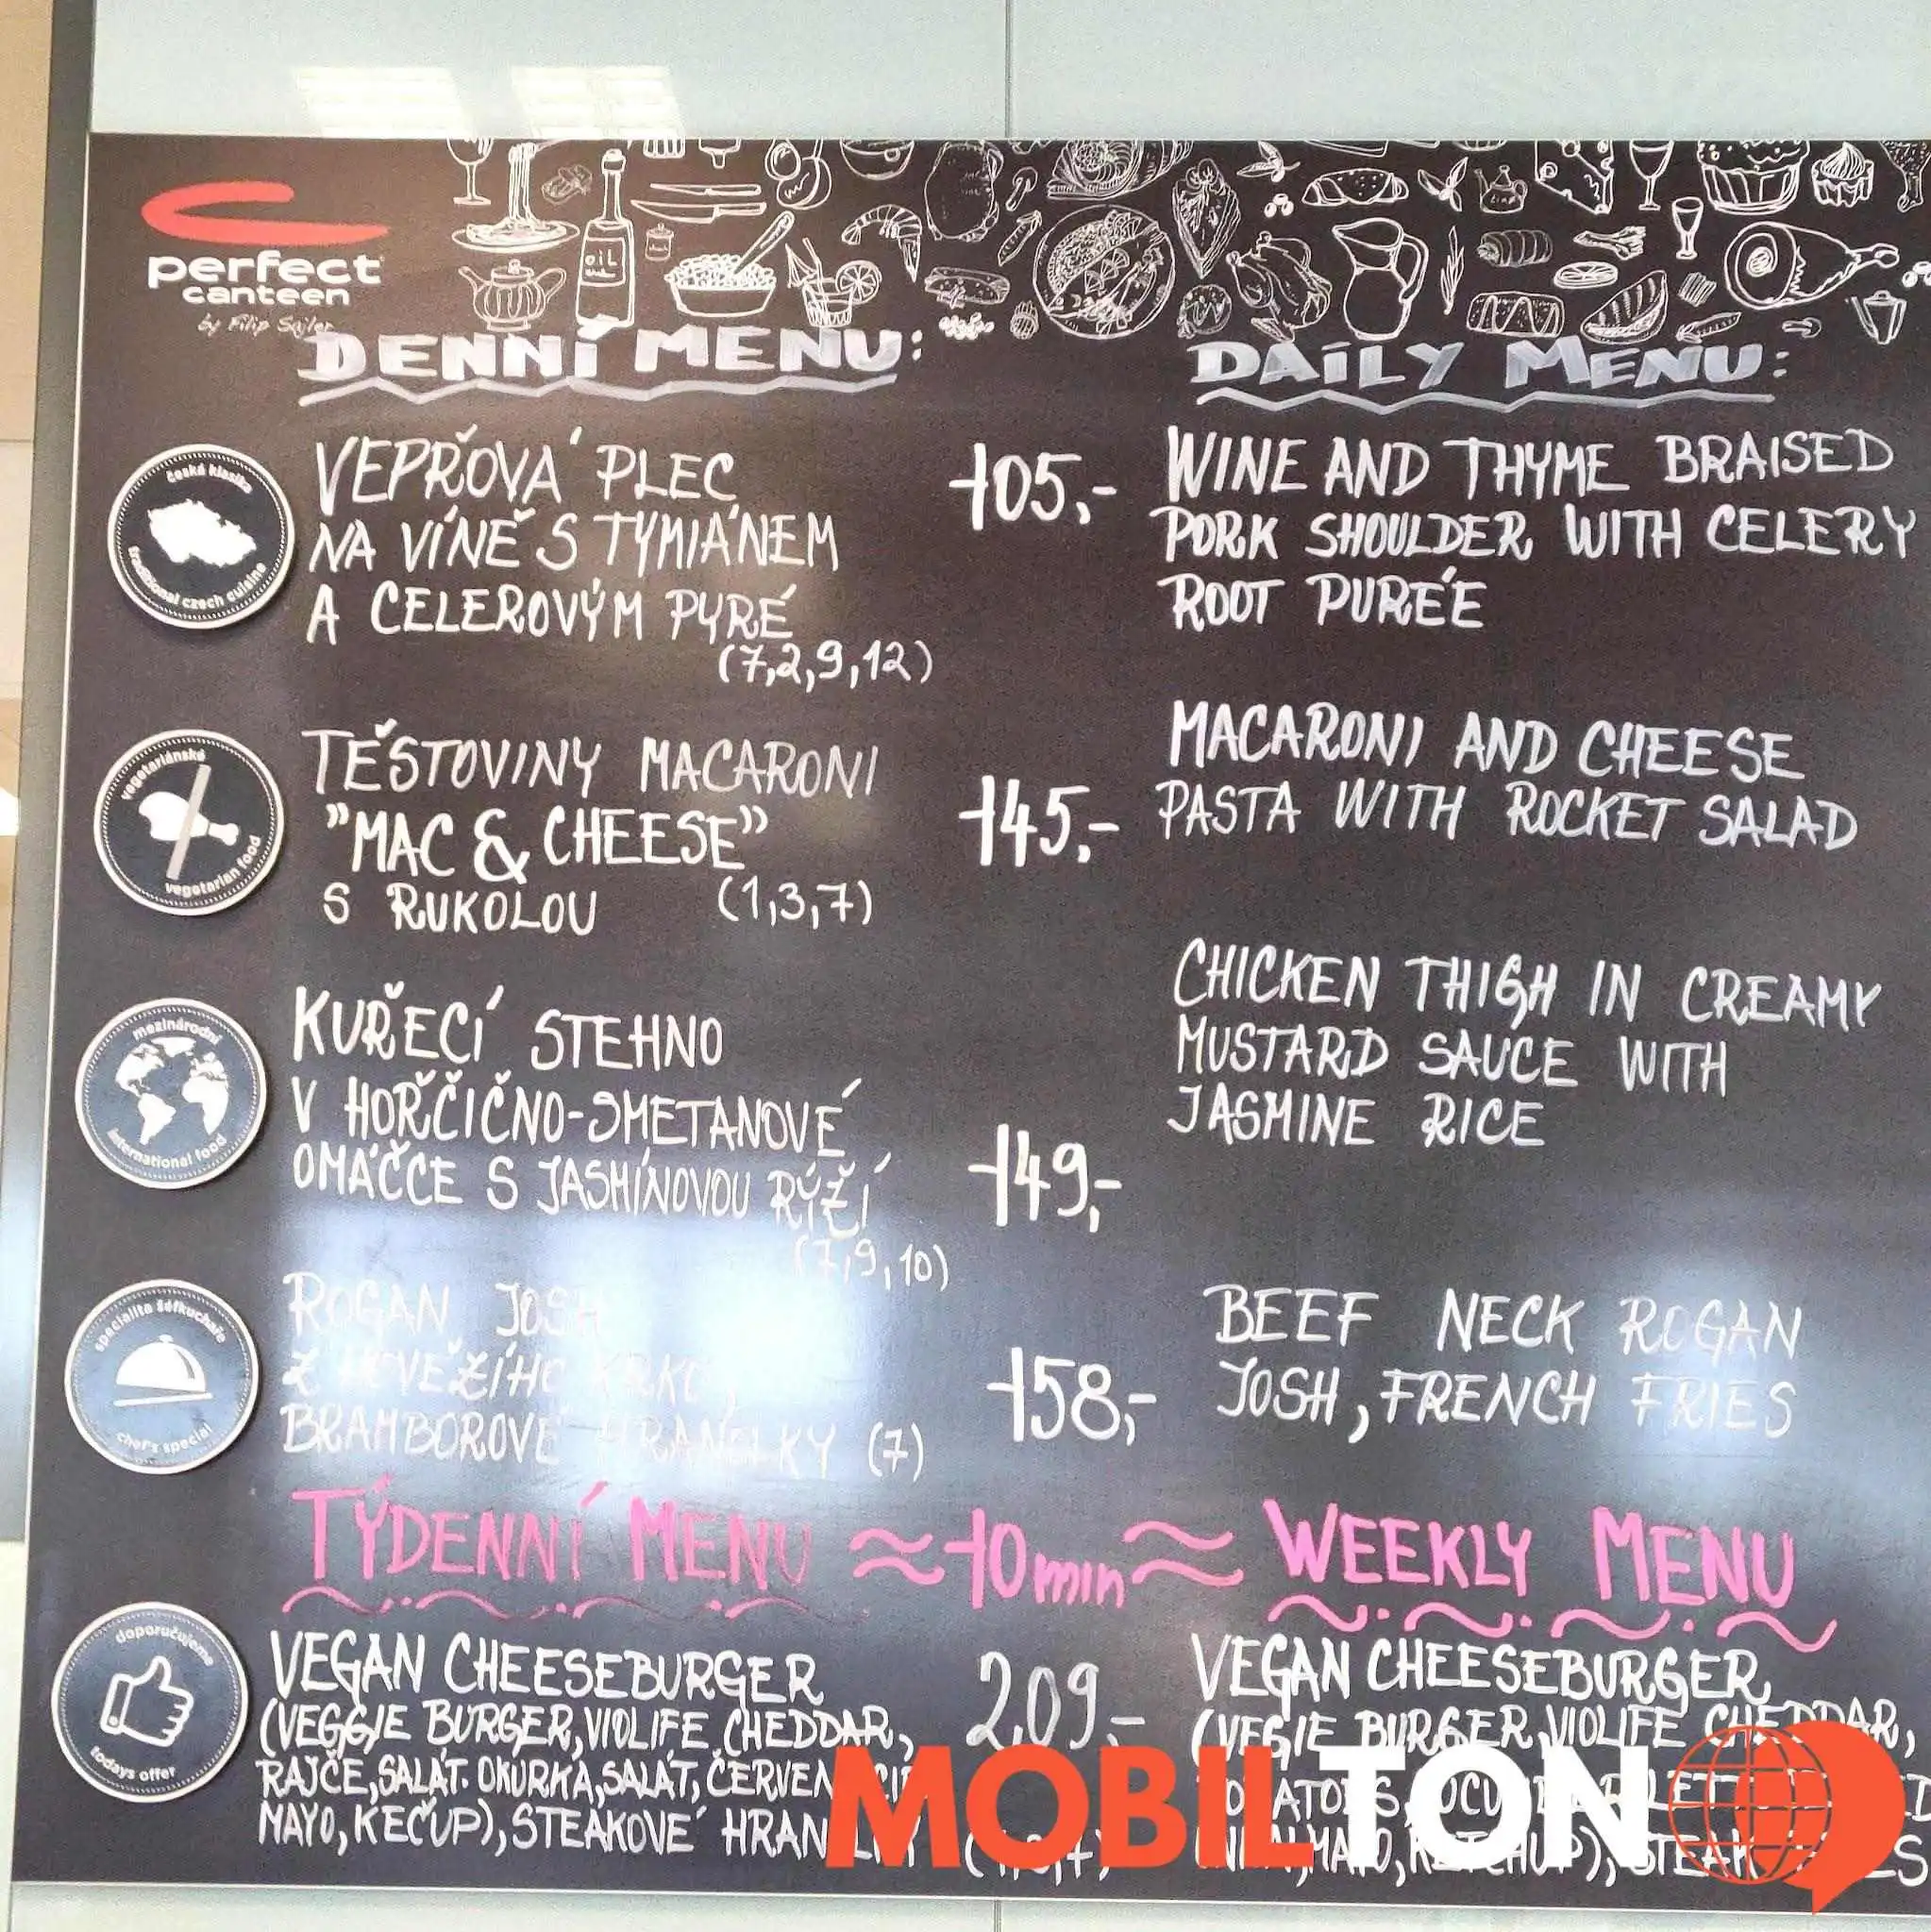 perfect
canteen
by Filip Sajler
DENNÍ MENU:
DAILY MENU:
česká klasika
traditional czech cuisine
VEPŘOVÁ PLEC
NA VÍNĚ S TYMIÁNEM
A CELEROVÝM PYRÉ
(7,2,9,12)
105,-
WINE AND THYME BRAISED
PORK SHOULDER WITH CELERY
ROOT PURÉE
vegetariánské
vegetarian food
TĚSTOVINY MACARONI
"MAC & CHEESE"
S RUKOLOU (1,3,7)
145,-
MACARONI AND CHEESE
PASTA WITH ROCKET SALAD
mezinárodní
international food
KUŘECÍ STEHNO
V HOŘČIČNO-SMETANOVÉ
OMÁČCE S JASMÍNOVOU RÝŽÍ
(7,9,10)
149,-
CHICKEN THIGH IN CREAMY
MUSTARD SAUCE WITH
JASMINE RICE
specialita šéfkuchaře
chef's special
ROGAN JOSH
Z
BRAMBOROVÉ HRANOLKY (7)
158,-
BEEF NECK ROGAN
JOSH, FRENCH FRIES
TÝDENNÍ MENU ≈10min≈ WEEKLY MENU
doporučujeme
todays offer
VEGAN CHEESEBURGER
(VEGGIE BURGER, VIOLIFE CHEDDAR,
RAJČE, SALÁT. OKURKA, SALÁT,
MAYO, KEČUP), STEAKOVÉ
209,-
VEGAN CHEESEBURGER
(VEGIE BURGER, VIOLIFE CHEDDAR,
MAYO, KETCHUP), STEAK
MOBILTON